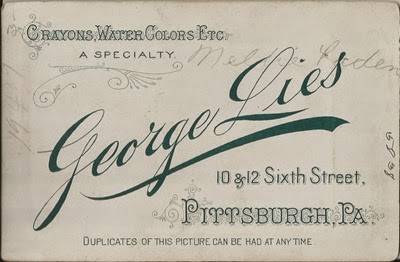 Crayons, Water Colors Etc.
A SPECIALTY.
George Lies
10 & 12 Sixth Street,
PITTSBURGH, PA.
DUPLICATES OF THIS PICTURE CAN BE HAD AT ANY TIME